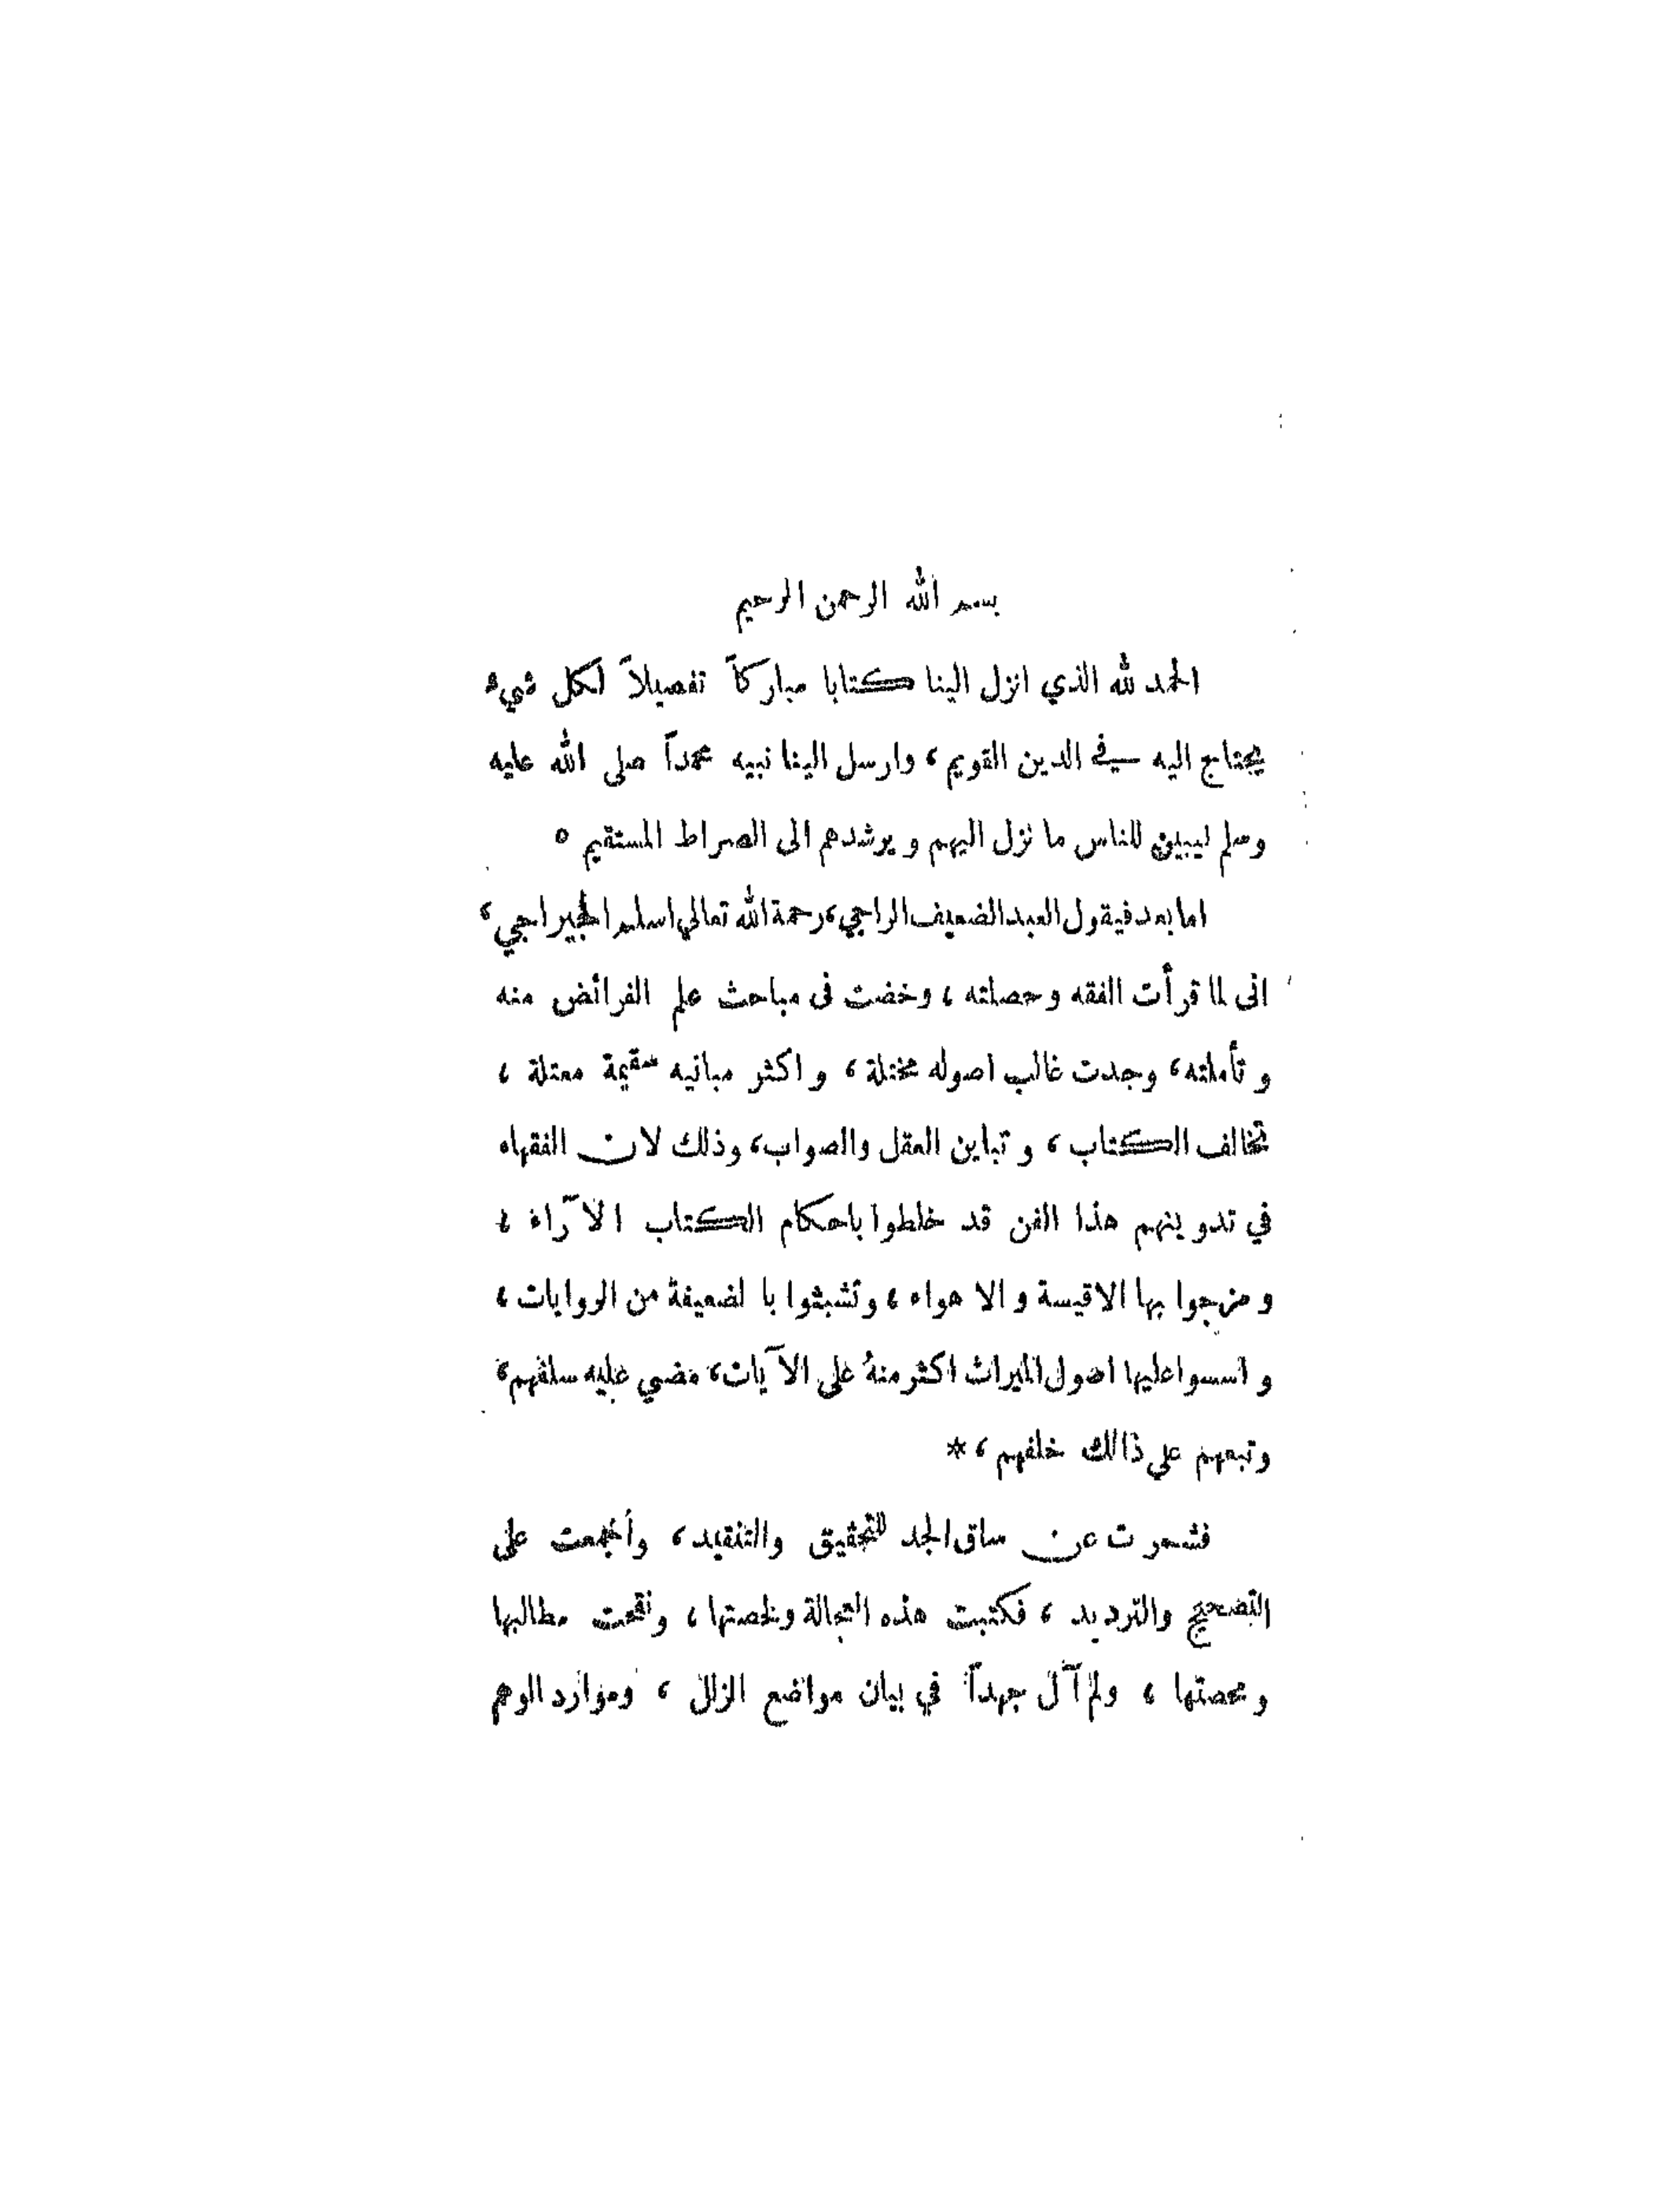 بسم الله الرحمن الرحيم
الحمد لله الذي انزل الينا كتابا مباركاً تفصيلاً لكل شيء
يحتاج اليه في الدين القويم، وارسل الينا نبيه محمداً صلى الله عليه
وسلم ليبين للناس ما نزل اليهم و يرشدهم الى الصراط المستقيم ٥
اما بعد فيقول العبد الضعيف الراجي، رحمة الله تعالي اسلم الجيراجي،
انى لما قرأت الفقه و حصلته، وخضت فى مباحث علم الفرائض منه
و تأملته، وجدت غالب اصوله مختلة، و اكثر مبانيه سقيمة معتلة،
تخالف الكتاب، و تباين العقل والصواب، وذلك لان الفقهاء
في تدوينهم هذا الفن قد خلطوا باحكام الكتاب الآراء،
و مزجوا بها الاقيسة و الا هواء، وتشبثوا با لضعيفة من الروايات،
و اسسوا عليها اصول الميراث اكثر منهُ على الآيات، مضي عليه سلفهم،
وتبعهم علي ذالك خلفهم، *
فشمر ت عن ساق الجد للتحقيق والتنقيد، وأجمعت على
التصحيح والترديد، فكتبت هذه العجالة ولخصتها، ونقحت مطالبها
و محصتها، ولم آل جهداً في بيان مواضع الزلل، وموارد الوهم